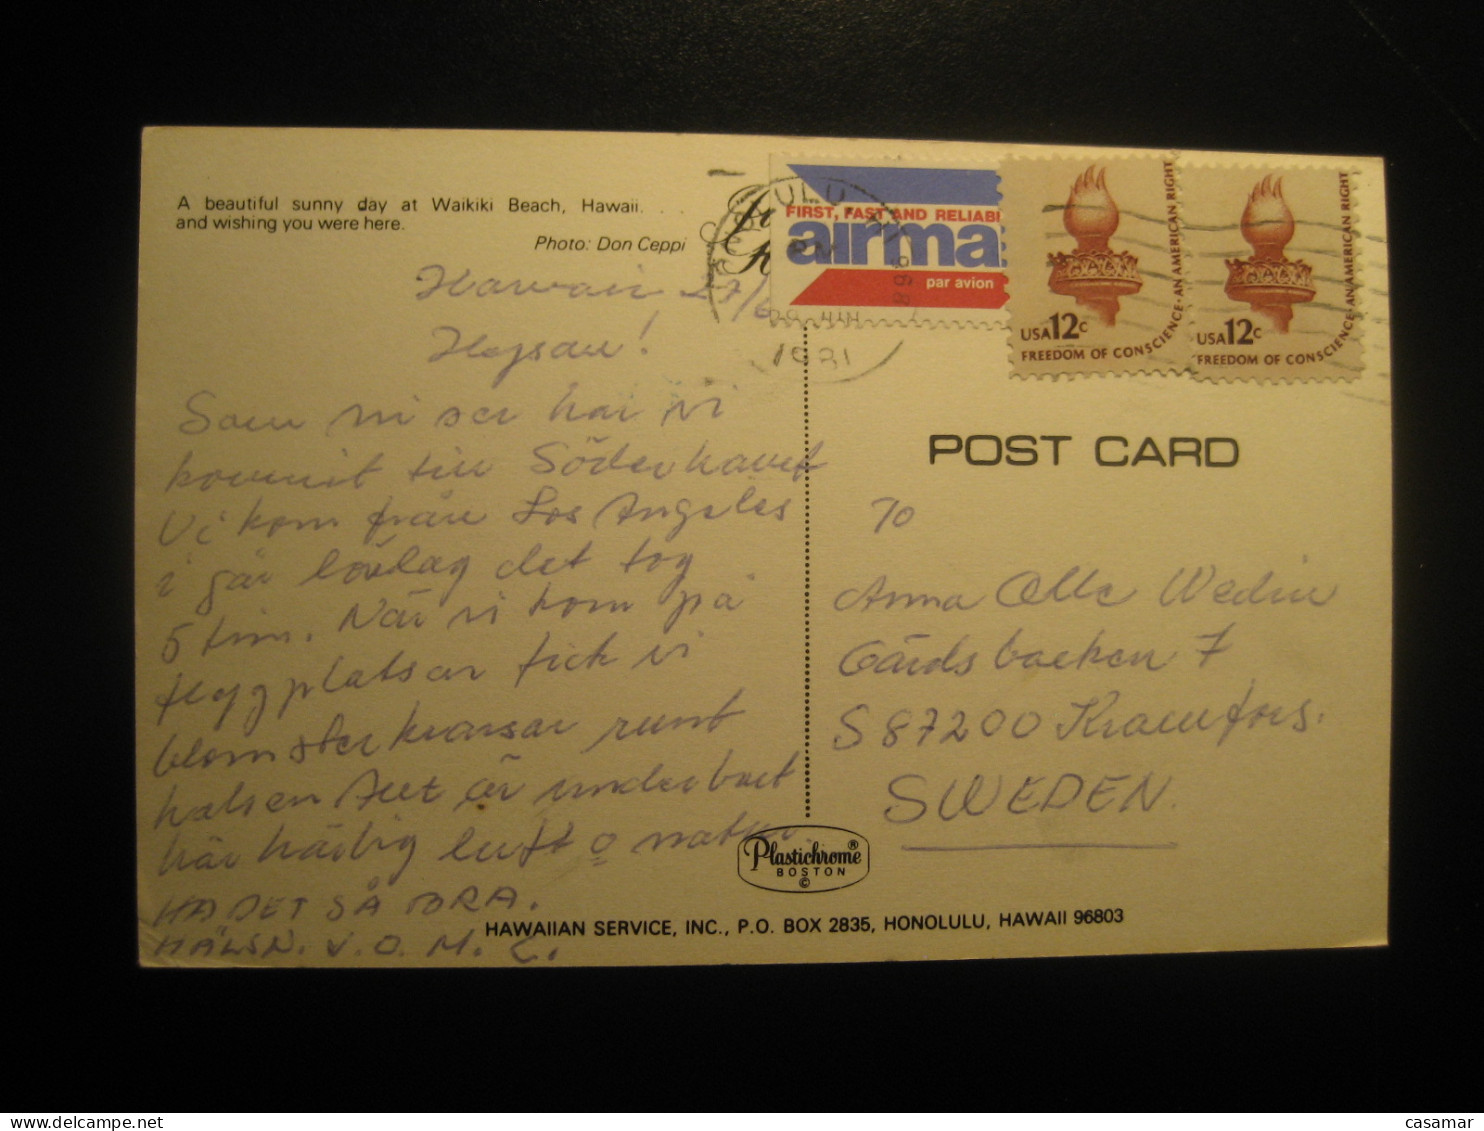 A beautiful sunny day at Waikiki Beach, Hawaii. . .
and wishing you were here.
Photo: Don Ceppi
FIRST, FAST AND RELIABI
airma
par avion
1981
USA 12c
FREEDOM OF CONSCIENCE·AN AMERICAN RIGHT
USA 12c
FREEDOM OF CONSCIENCE·AN AMERICAN RIGHT
Hawaii 27/6
Hejsan!
Som ni ser har vi
kommit till Söderhavet
Vi kom från Los Angeles
i går lördag det tog
5 tim. När vi kom på
flygplatsen fick vi
blomsterkransar runt
halsen Allt är underbart
här härlig luft o natur.
HA DET SÅ BRA.
HÄLSN. V.O. M. C.
POST CARD
To
Anna Olle Wedin
Gärdsbacken 7
S 87200 Kramfors.
SWEDEN.
Plastichrome®
BOSTON
©
HAWAIIAN SERVICE, INC., P.O. BOX 2835, HONOLULU, HAWAII 96803
casamar
delcampe.net